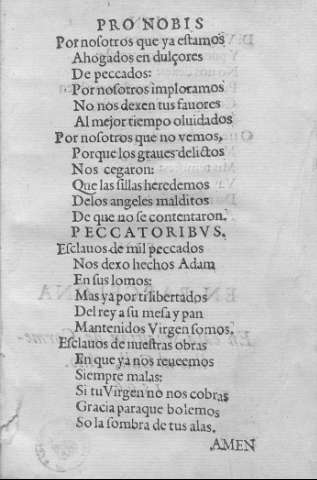 PRO NOBIS
Por nosotros que ya estamos
Ahogados en dulçores
De peccados:
Por nosotros imploramos
No nos dexen tus fauores
Al mejor tiempo oluidados
Por nosotros que no vemos,
Porque los graues delictos
Nos cegaron:
Que las sillas heredemos
Delos angeles malditos
De que no se contentaron.
PECCATORIBVS.
Esclauos de mil peccados
Nos dexo hechos Adam
En sus lomos:
Mas ya por ti libertados
Del rey a su mesa y pan
Mantenidos Virgen somos.
Esclauos de nuestras obras
En que ya nos reueemos
Siempre malas:
Si tu Virgen no nos cobras
Gracia paraque bolemos
So la sombra de tus alas.
AMEN